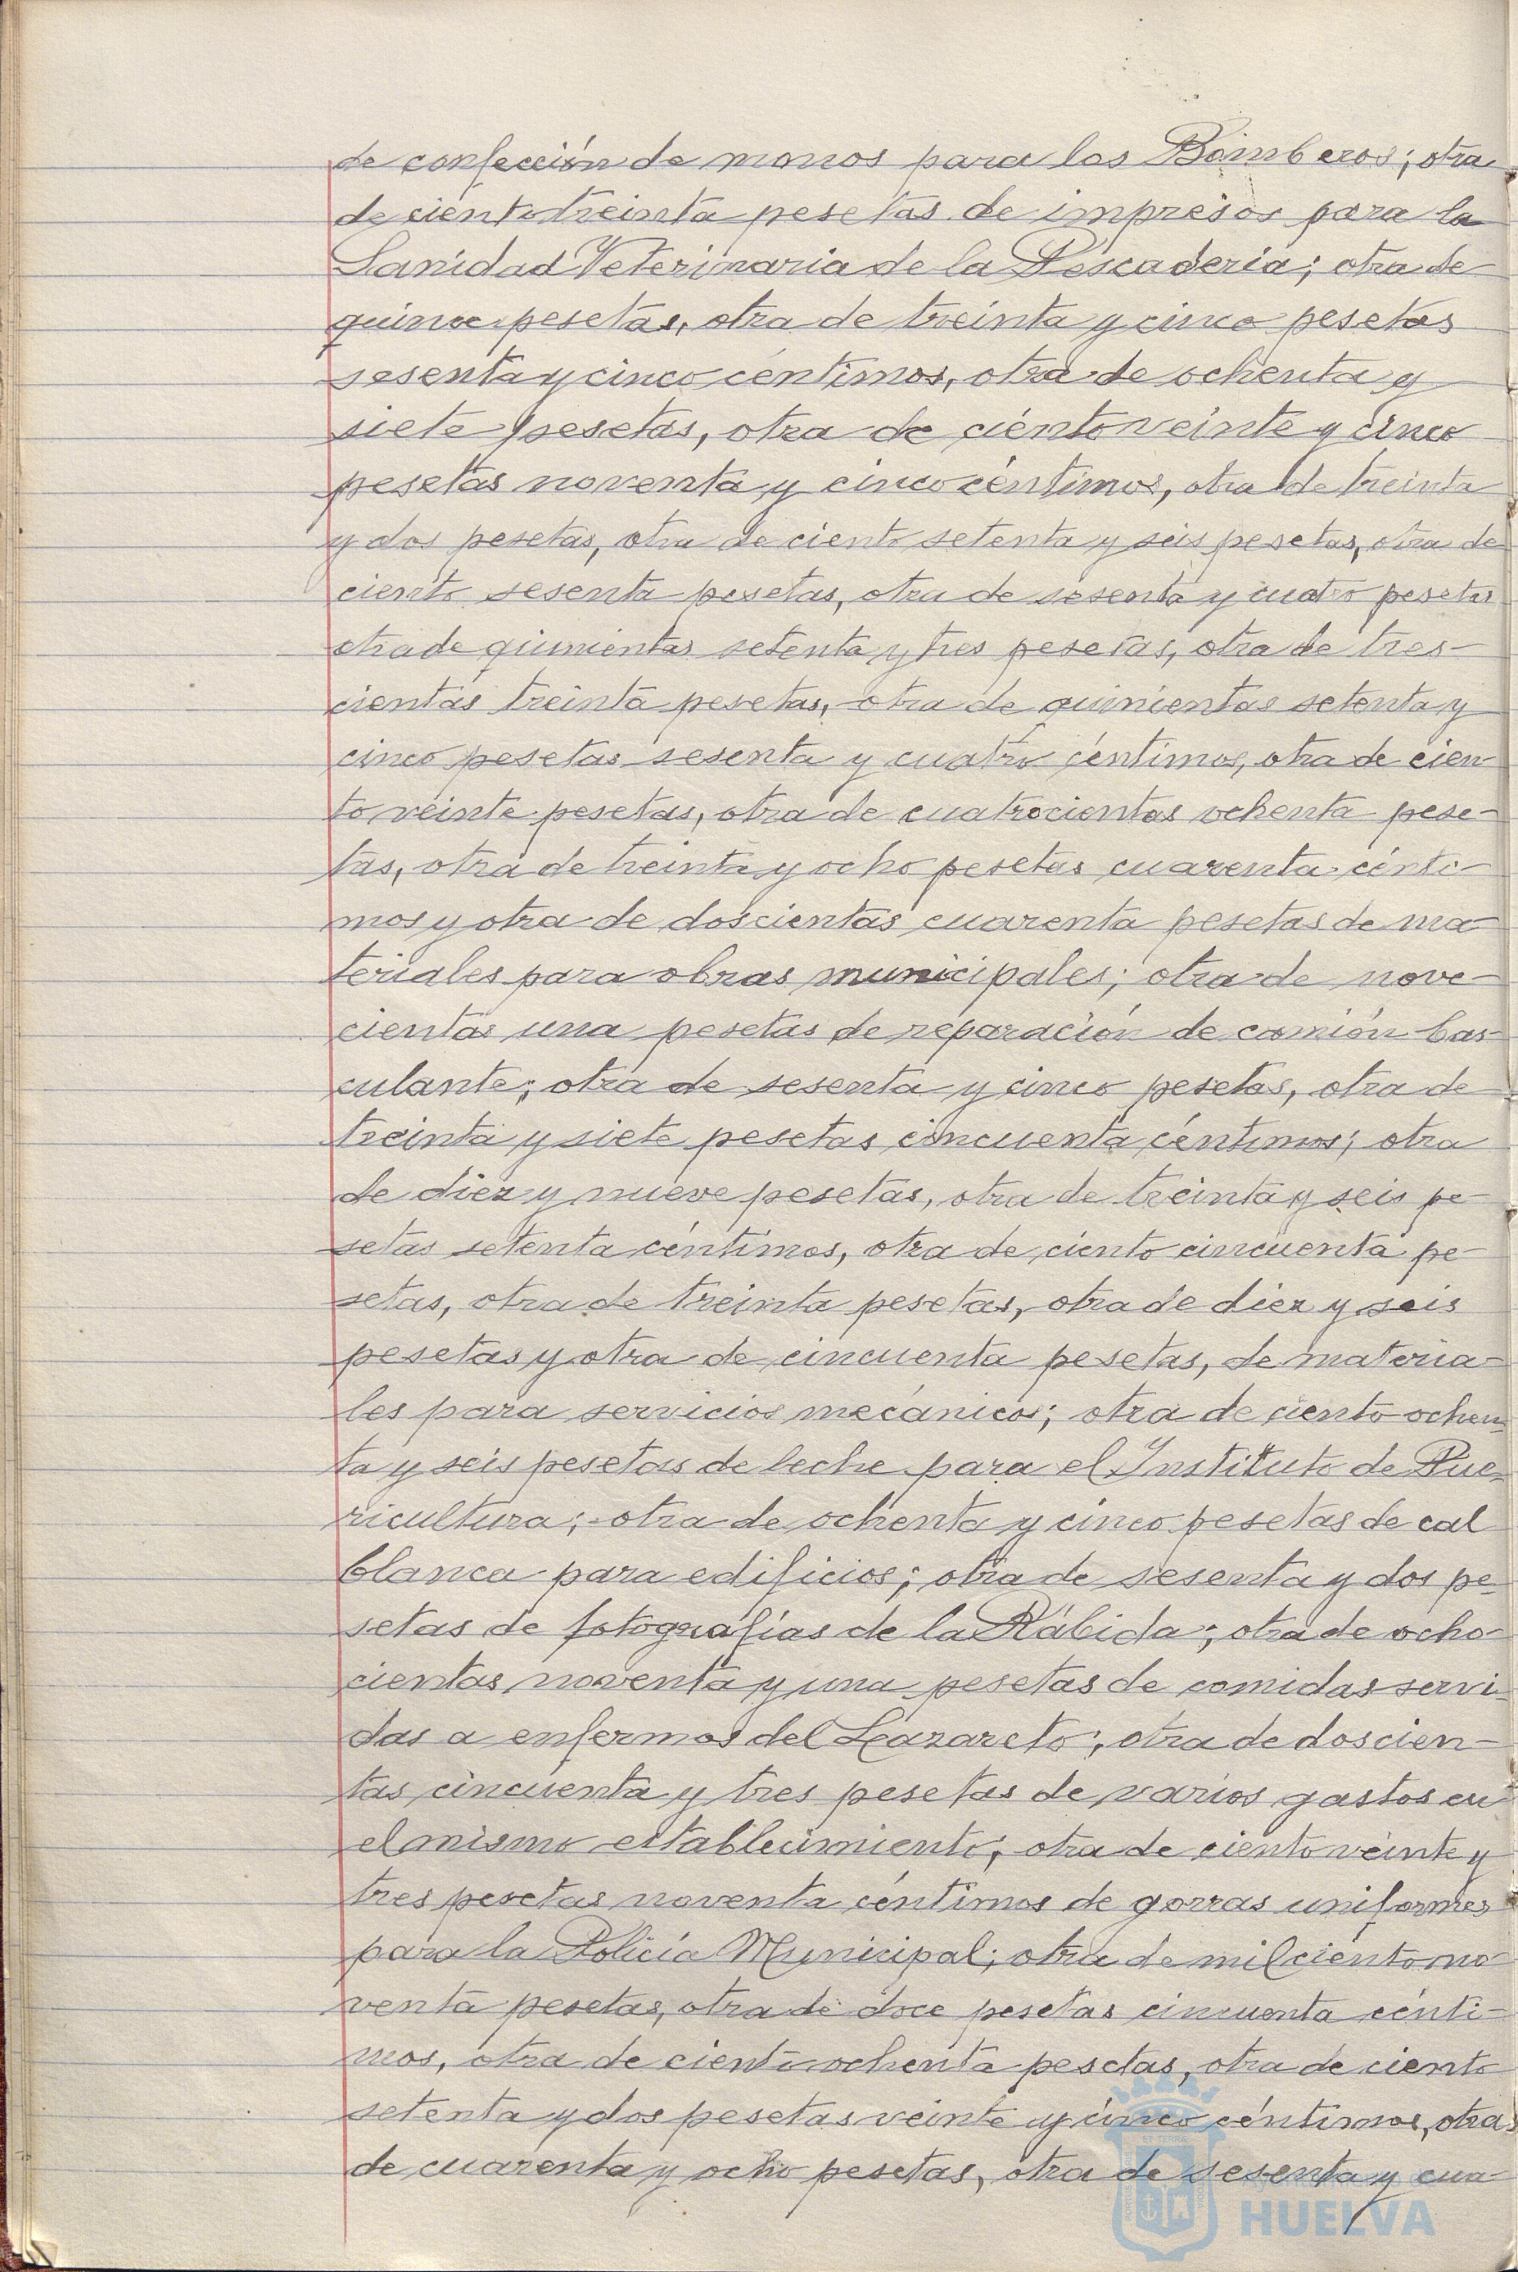 de confección de monos para los Bomberos; otra
de ciento treinta pesetas de impresos para la
Sanidad Veterinaria de la Pescadería; otra de
quince pesetas, otra de treinta y cinco pesetas
sesenta y cinco céntimos, otra de ochenta y
siete pesetas, otra de ciento veinte y cinco
pesetas noventa y cinco céntimos, otra de treinta
y dos pesetas, otra de ciento setenta y seis pesetas, otra de
ciento sesenta pesetas, otra de sesenta y cuatro pesetas
otra de quinientas setenta y tres pesetas, otra de tres-
cientas treinta pesetas, otra de quinientas setenta y
cinco pesetas sesenta y cuatro céntimos, otra de cien
to veinte pesetas, otra de cuatrocientas ochenta pese-
tas, otra de treinta y ocho pesetas cuarenta cénti-
mos y otra de doscientas cuarenta pesetas de ma-
teriales para obras municipales; otra de nove-
cientas una pesetas de reparación de camión bas-
culante; otra de sesenta y cinco pesetas, otra de
treinta y siete pesetas cincuenta céntimos; otra
de diez y nueve pesetas, otra de treinta y seis pe-
setas setenta céntimos, otra de ciento cincuenta pe-
setas, otra de treinta pesetas, otra de diez y seis
pesetas y otra de cincuenta pesetas, de materia-
les para servicios mecánicos; otra de ciento ochen-
ta y seis pesetas de leche para el Instituto de Pue-
ricultura; otra de ochenta y cinco pesetas de cal
blanca para edificios; otra de sesenta y dos pe-
setas de fotografías de la Rábida; otra de ocho-
cientas noventa y una pesetas de comidas servi-
das a enfermos del Lazareto; otra de doscien-
tas cincuenta y tres pesetas de varios gastos en
el mismo establecimiento; otra de ciento veinte y
tres pesetas noventa céntimos de gorras uniformes
para la Policía Municipal; otra de mil ciento no-
venta pesetas, otra de doce pesetas cincuenta cénti-
mos, otra de ciento ochenta pesetas, otra de ciento
setenta y dos pesetas veinte y cinco céntimos, otras
de cuarenta y ocho pesetas, otra de sesenta y cua-
HUELVA